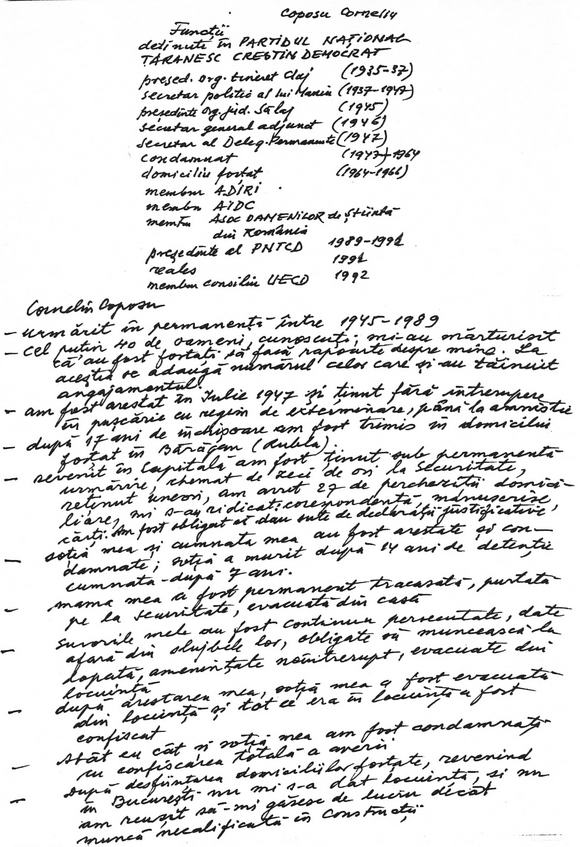 Coposu Corneliu
Funcții
deținute în PARTIDUL NAȚIONAL
ȚĂRĂNESC CREȘTIN DEMOCRAT
președ. org. tineret Cluj (1935-37)
secretar politic al lui Maniu (1937-1947)
președinte org. jud. Sălaj (1945)
secretar general adjunct (1946)
secretar al Deleg. Permanente (1947)
condamnat (1947-1964
domiciliu forțat (1964-1966)
membru ADIRI
membru AIDC
membru ASOC OAMENILOR de Știință
din România
președinte al PNȚCD 1989-1991
reales 1991
membru consiliu UECD 1992
Corneliu Coposu
- urmărit în permanență între 1945-1989
- Cel puțin 40 de oameni, cunoscuți, mi-au mărturisit
că au fost forțați să facă rapoarte despre mine. La
aceștia se adaugă numărul celor care și-au tăinuit
angajamentul.
- am fost arestat în Iulie 1947 și ținut fără întrerupere
în pușcărie cu regim de exterminare, până la amnistie
- după 17 ani de închisoare am fost trimis în domiciliu
forțat în Bărăgan (Rubla).
- revenit în Capitală am fost ținut sub permanentă
urmărire, chemat de zeci de ori la Securitate,
reținut uneori, am avut 27 de percheziții domici-
liare, mi s-au ridicat: corespondență, manuscrise,
cărți. Am fost obligat să dau sute de declarații justificative,
- soția mea și cumnata mea au fost arestate și con-
damnate; soția a murit după 14 ani de detenție
cumnata - după 7 ani.
- mama mea a fost permanent tracasată, purtată
pe la securitate, evacuată din casă
- Surorile mele au fost continuu persecutate, date
afară din slujbele lor, obligate să muncească la
lopată, amenințate neîntrerupt, evacuate din
locuință
- după arestarea mea, soția mea a fost evacuată
din locuință și tot ce era în locuință a fost
confiscat
- Atât eu cât și soția mea am fost condamnați
cu confiscarea totală a averii
- După desființarea domiciliilor forțate, revenind
în București nu mi s-a dat locuință, și nu
am reușit să-mi găsesc de lucru decât
muncă necalificată în construcții